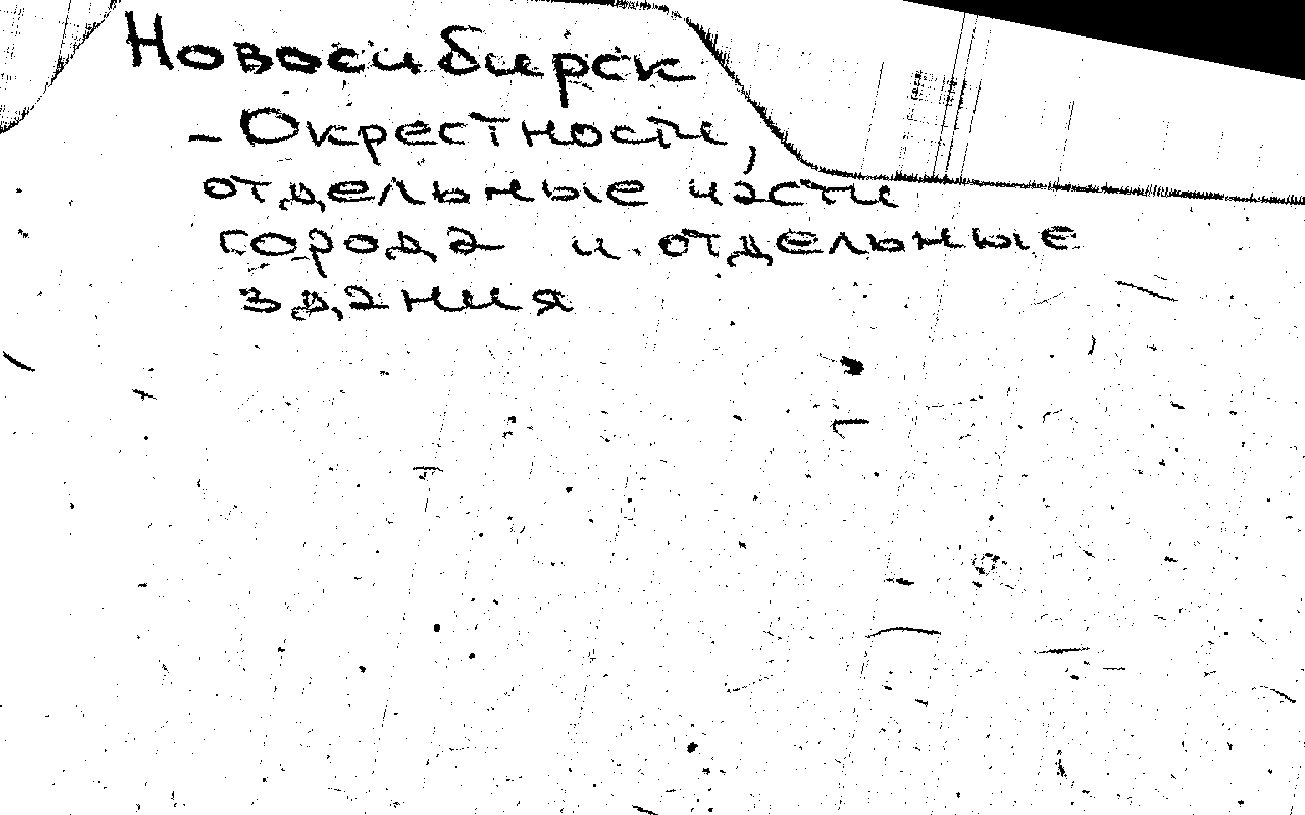 Новосибирск
- Окрестности,
отдельные части
города и отдельные
здания